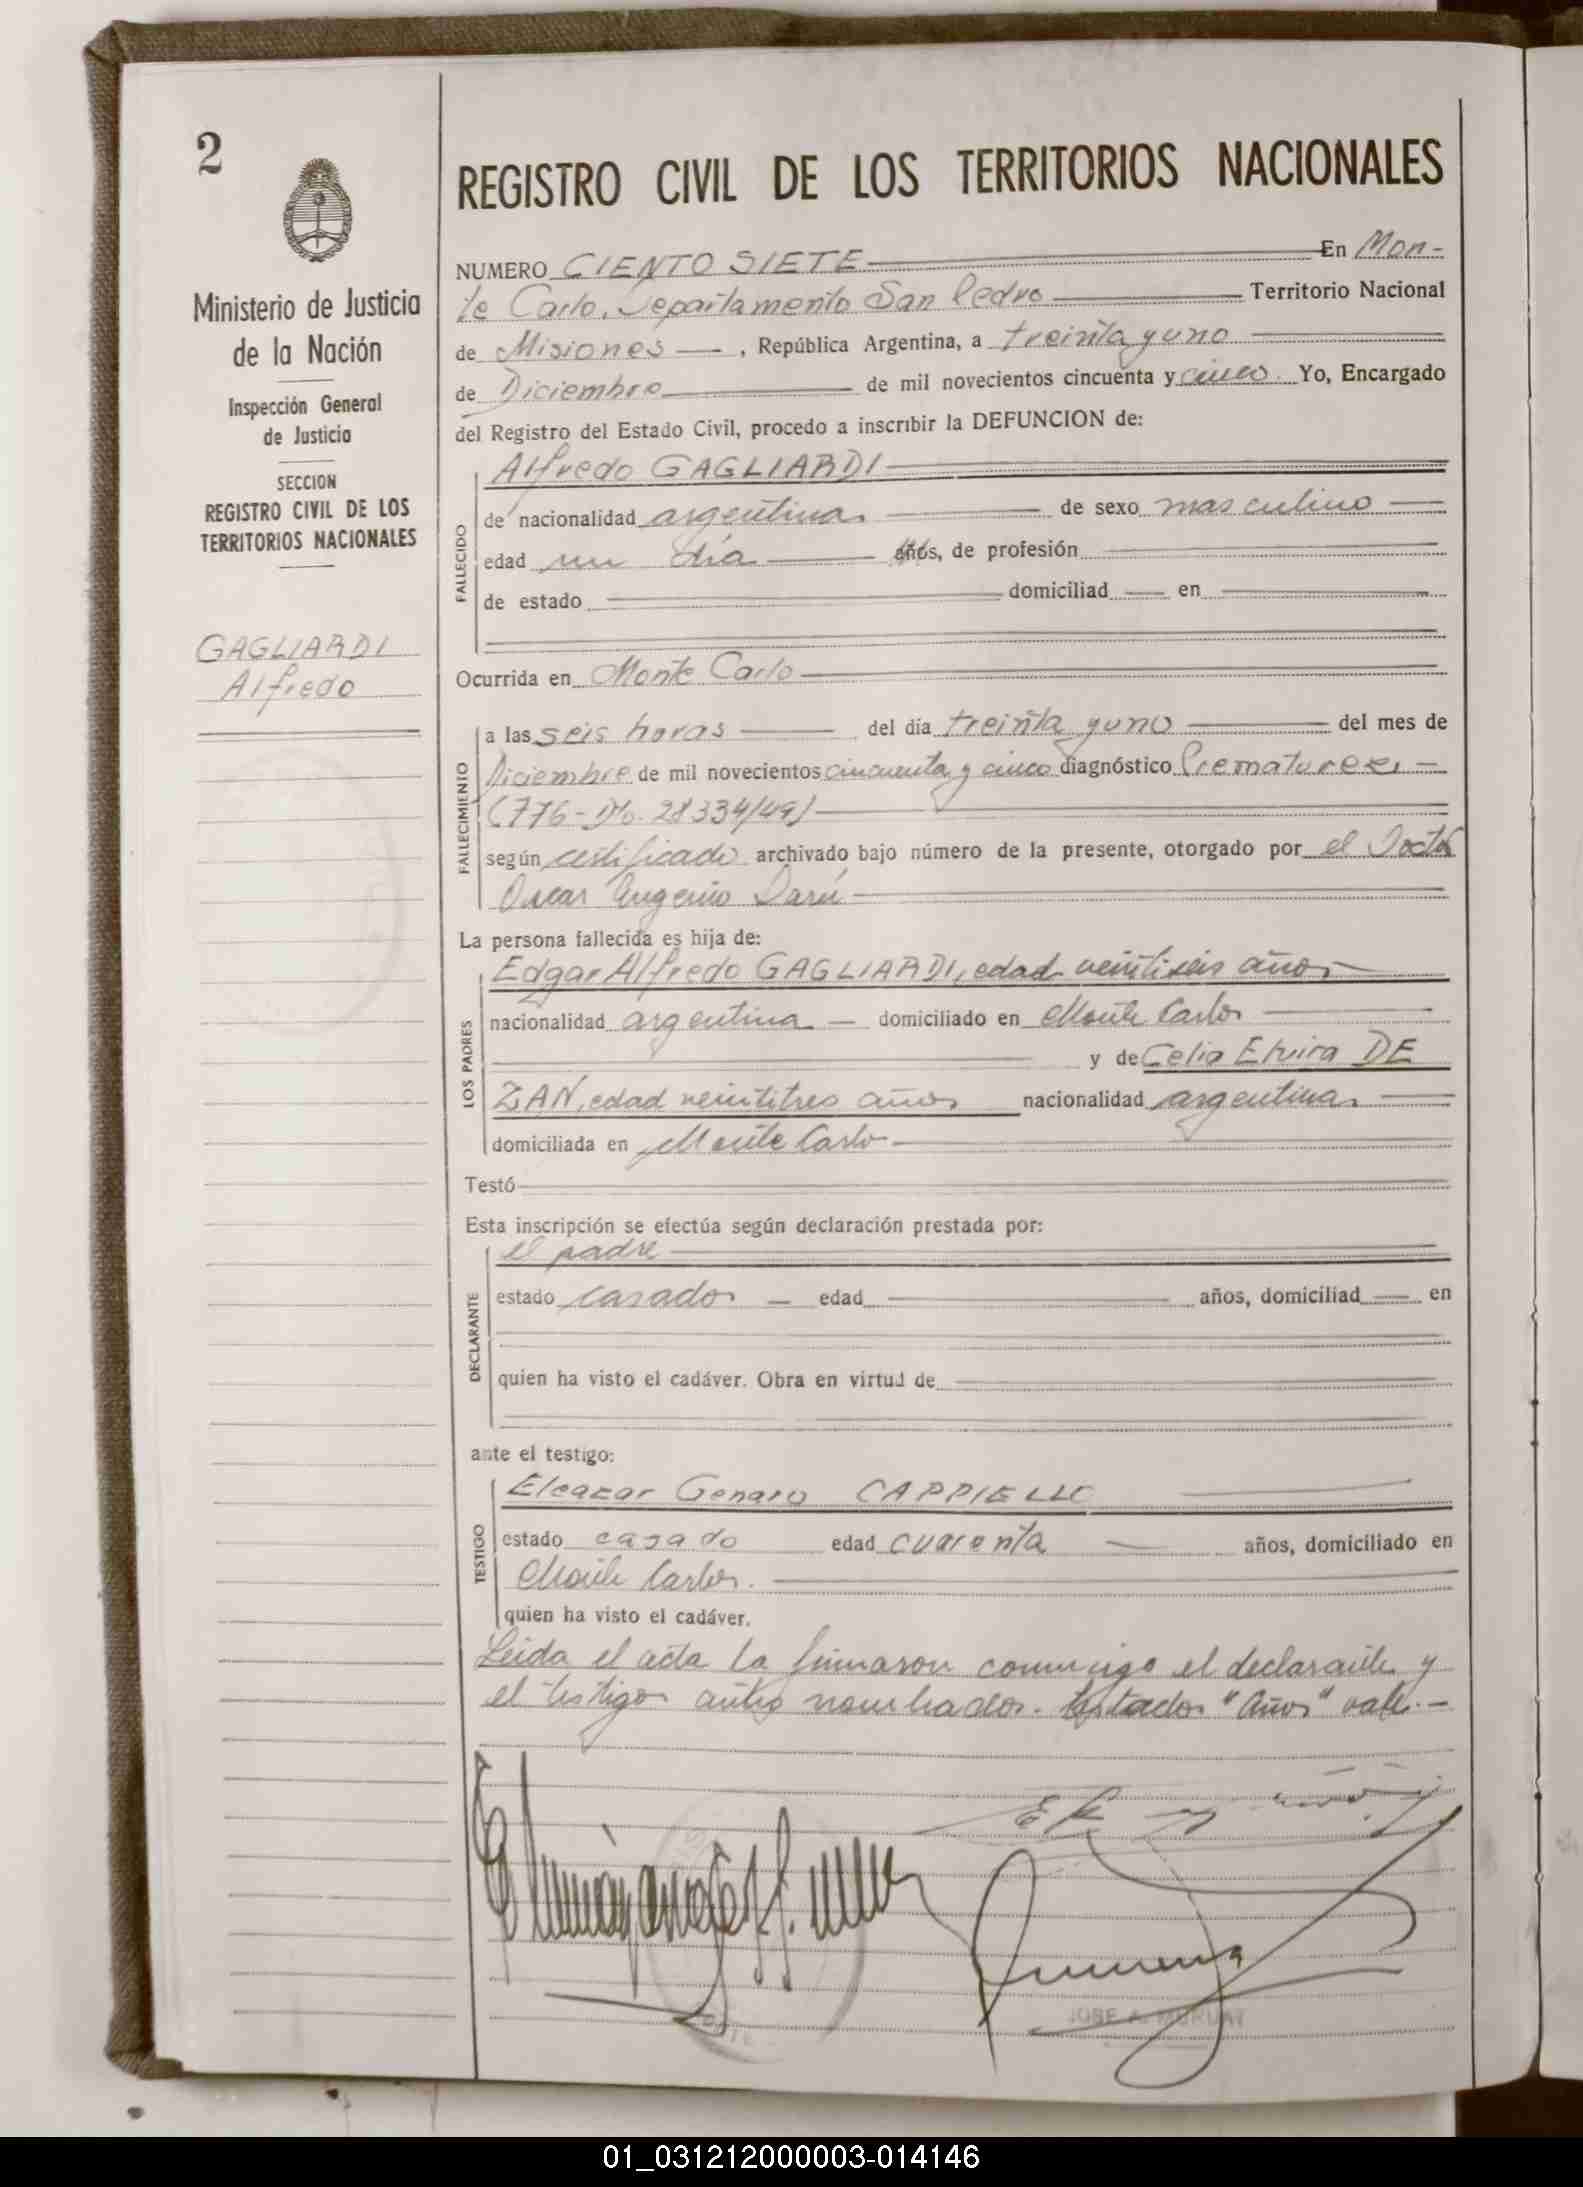 2
Ministerio de Justicia
de la Nación
Inspección General
de Justicia
SECCION
REGISTRO CIVIL DE LOS
TERRITORIOS NACIONALES
GAGLIARDI
Alfredo
REGISTRO CIVIL DE LOS TERRITORIOS NACIONALES
NUMERO CIENTO SIETE En Mon-
te Carlo, Departamento San Pedro Territorio Nacional
de Misiones, República Argentina, a treinta y uno
de Diciembre de mil novecientos cincuenta y cinco. Yo, Encargado
del Registro del Estado Civil, procedo a inscribir la DEFUNCION de:
FALLECIDO
Alfredo GAGLIARDI
de nacionalidad argentina de sexo masculino
edad un día años, de profesión
de estado domiciliad en
Ocurrida en Monte Carlo
FALLECIMIENTO
a las seis horas del día treinta y uno del mes de
Diciembre de mil novecientos cincuenta y cinco diagnóstico Prematurez -
(776- Dto. 28334/49)
según certificado archivado bajo número de la presente, otorgado por el Doctor
Oscar Eugenio Darú
La persona fallecida es hija de:
LOS PADRES
Edgar Alfredo GAGLIARDI, edad veintiseis años
nacionalidad argentina domiciliado en Monte Carlo
y de Celia Elvira DE
ZAN, edad veintitres años nacionalidad argentina
domiciliada en Monte Carlo
Testó
Esta inscripción se efectúa según declaración prestada por:
DECLARANTE
el padre
estado casado edad años, domiciliad en
quien ha visto el cadáver. Obra en virtud de
ante el testigo:
TESTIGO
Eleazar Genaro CAPPIELLO
estado casado edad cuarenta años, domiciliado en
Monte Carlo.
quien ha visto el cadáver.
Leida el acta la firmaron conmigo el declarante y
el testigo antes nombrados. Testado "años" vale.-
JOSE A. MURUAT
01_031212000003-014146